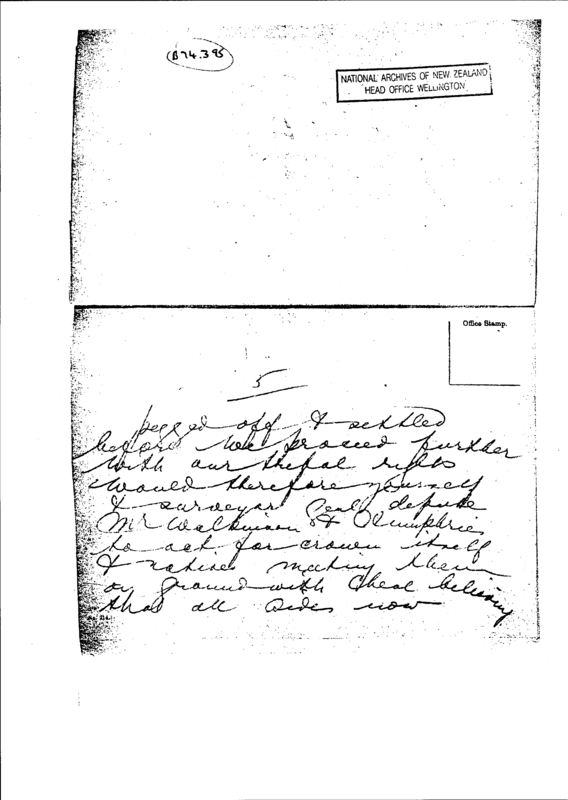 B74.395
NATIONAL ARCHIVES OF NEW ZEALAND
HEAD OFFICE WELLINGTON
Office Stamp.
5
pegged off & settled
before we proceed further
with our rights
would therefore yourself
& surveyor depute
Mr Wilkinson & Olumphries
to act for crown itself
& natives making them
on ground with Cheal believing
that all sides now